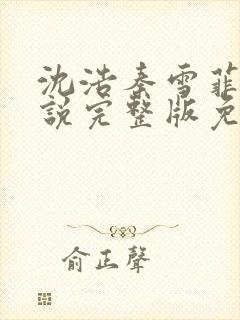 沈浩秦雪菲
說完整版免
俞正聲